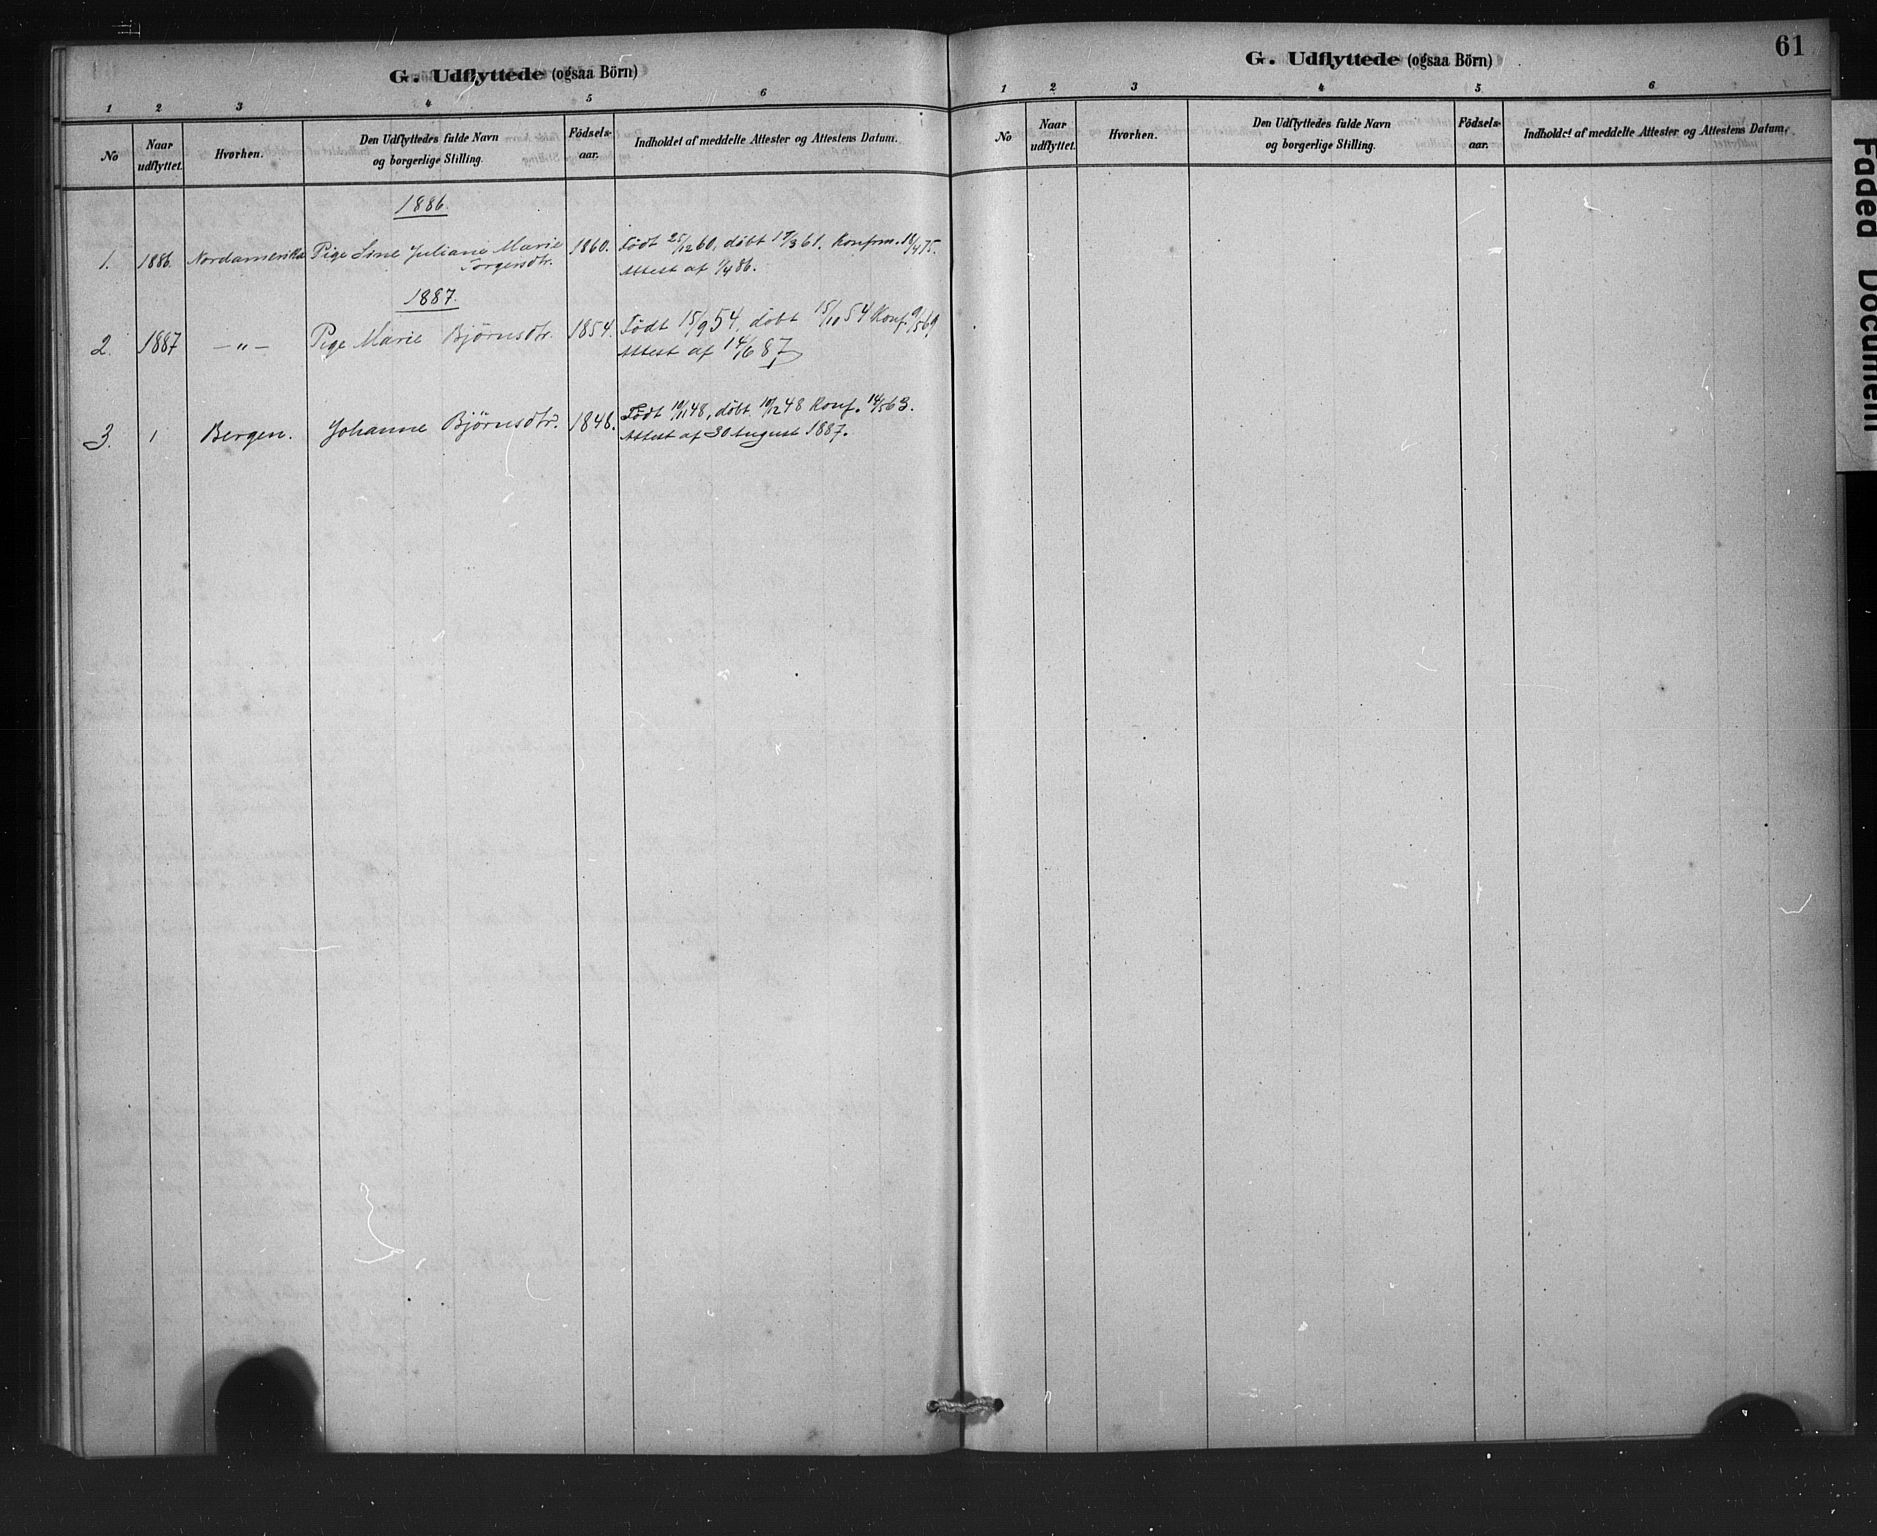 G. Udflyttede (ogsaa Börn)
1 2 3 4 5 6
No Naar udflyttet. Hvorhen. Den Udflyttedes fulde Navn og borgerlige Stilling. Födsels-aar. Indholdet af meddelte Attester og Attestens Datum.
1886
1. 1886. Nordamerika Pige Sine Juliane Marie 1860. Født 25/12 60, døbt 17/3 61. Konfirm. 18/4 75.
Torgersdtr. Attest af 7/4 86.
1887.
2. 1887 —„— Pige Marie Bjørnsdtr. 1854. Født 15/9 54, døbt 15/10 54 Konf. 9/5 69.
Attest af 14/6 87
3. 1 Bergen. Johanne Bjørnsdtr. 1848. Født 10/11 48, døbt 10/12 48 Konf. 14/5 63.
Attest af 30 August 1887.
G. Udflyttede (ogsaa Börn)
61
1 2 3 4 5 6
No Naar udflyttet. Hvorhen. Den Udflyttedes fulde Navn og borgerlige Stilling. Födsels-aar. Indholdet af meddelte Attester og Attestens Datum.
Faded Document